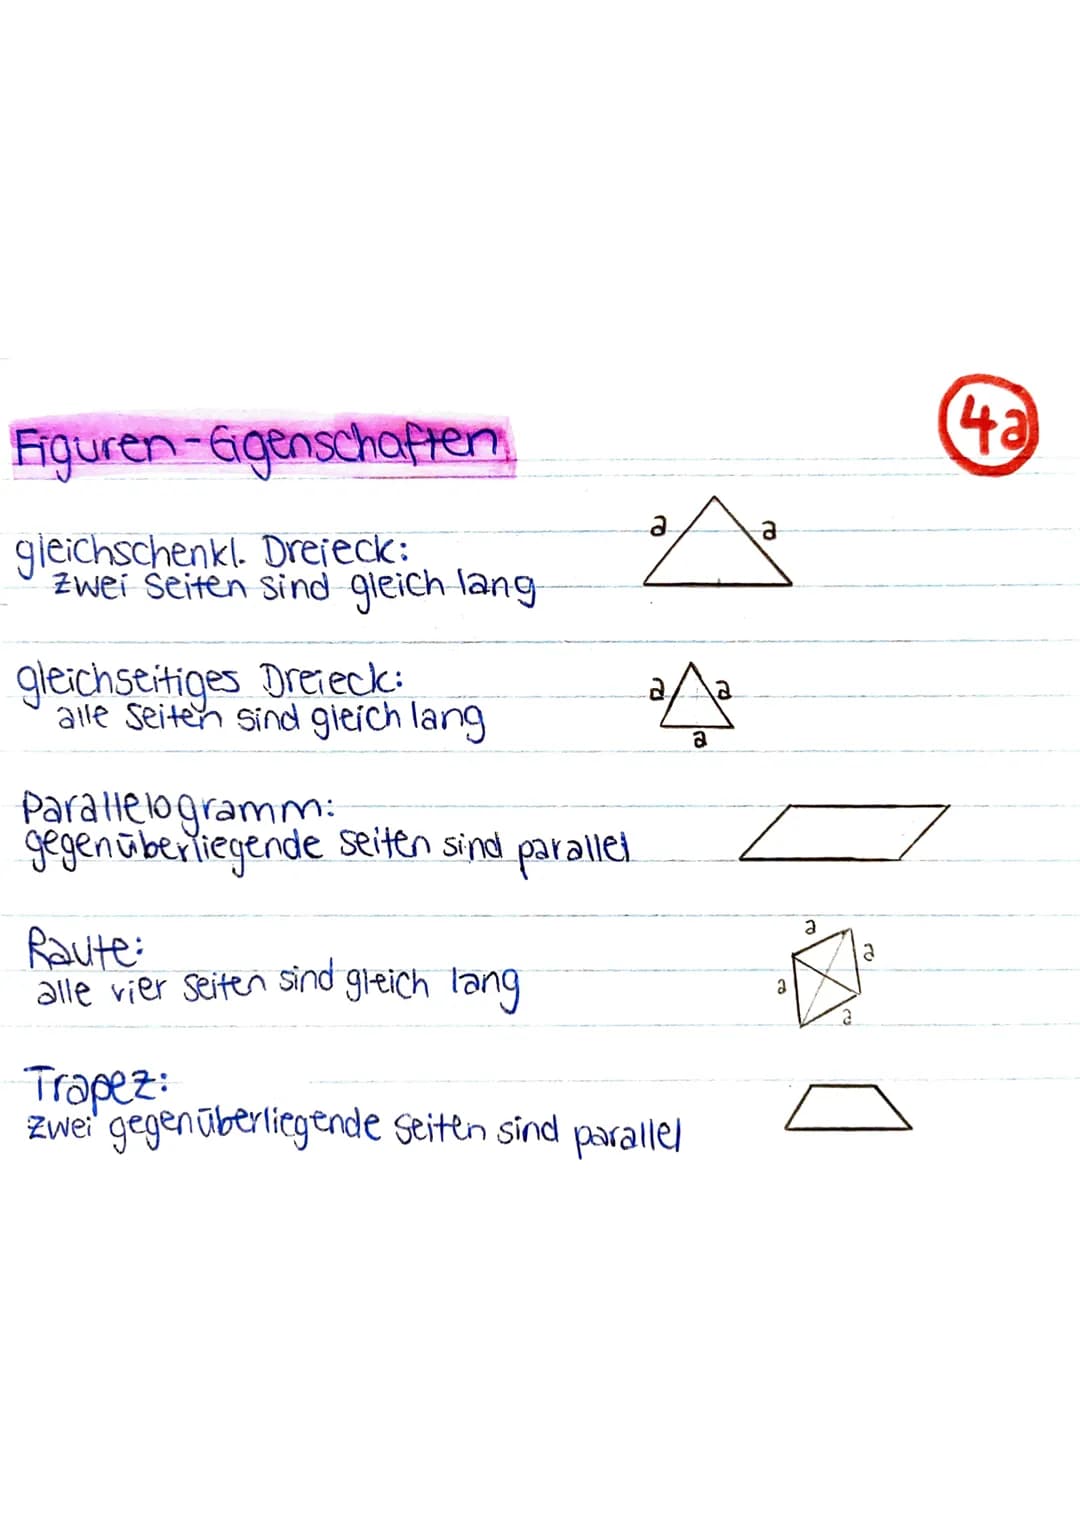 Figuren-Eigenschaften
4a
gleichschenkl. Dreieck:
zwei Seiten sind gleich lang
a
a
gleichseitiges Dreieck:
alle Seiten sind gleich lang
a
a
a
Parallelogramm:
gegenüberliegende Seiten sind parallel
Raute:
alle vier Seiten sind gleich lang
a
a
a
a
Trapez:
zwei gegenüberliegende Seiten sind parallel